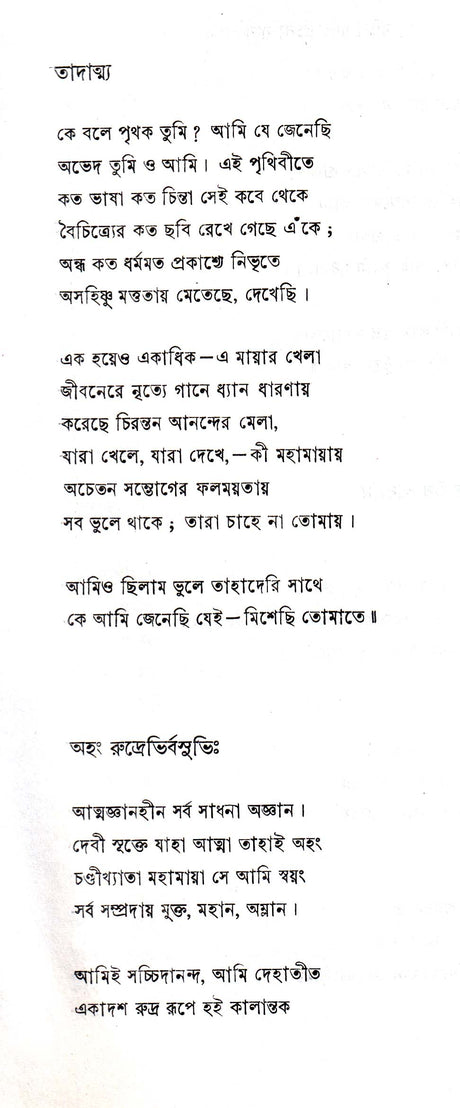 তাদাত্ম্য
কে বলে পৃথক তুমি? আমি যে জেনেছি
অভেদ তুমি ও আমি। এই পৃথিবীতে
কত ভাষা কত চিন্তা সেই কবে থেকে
বৈচিত্র্যের কত ছবি রেখে গেছে এঁকে;
অন্ধ কত ধর্মমত প্রকাশ্যে নিভৃতে
অসহিষ্ণু মত্ততায় মেতেছে, দেখেছি।
এক হয়েও একাধিক—এ মায়ার খেলা
জীবনেরে নৃত্যে গানে ধ্যান ধারণায়
করেছে চিরন্তন আনন্দের মেলা,
যারা খেলে, যারা দেখে,—কী মহামায়ায়
অচেতন সম্ভোগের ফলময়তায়
সব ভুলে থাকে; তারা চাহে না তোমায়।
আমিও ছিলাম ভুলে তাহাদেরি সাথে
কে আমি জেনেছি যেই—মিশেছি তোমাতে॥
অহং রুদ্রেভির্বসুভিঃ
আত্মজ্ঞানহীন সর্ব সাধনা অজ্ঞান।
দেবী সূক্তে যাহা আত্মা তাহাই অহং
চণ্ডীখ্যাতা মহামায়া সে আমি স্বয়ং
সর্ব সম্প্রদায় মুক্ত, মহান, অম্লান।
আমিই সচ্চিদানন্দ, আমি দেহাতীত
একাদশ রুদ্র রূপে হই কালান্তক